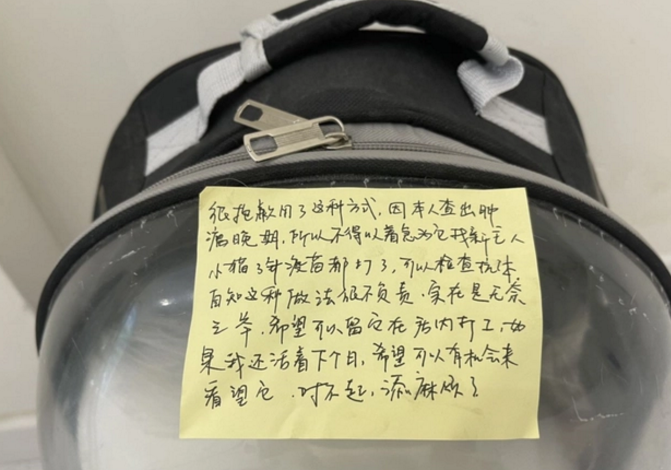 很抱歉用了这种方式，因本人查出肿
瘤晚期，所以不得以着急为它找新主人
小猫3针疫苗都打了，可以检查抗体
自知这种做法很不负责，实在是无奈
之举，希望可以留它在店内打工，如
果我还活着下个月，希望可以有机会来
看望它，对不起，添麻烦了